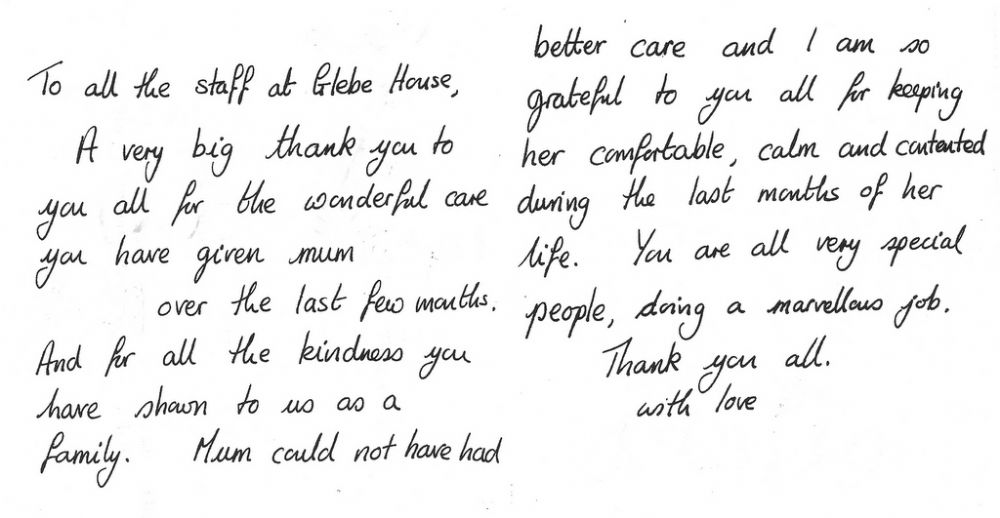 To all the staff at Glebe House,
A very big thank you to
you all for the wonderful care
you have given mum
over the last few months.
And for all the kindness you
have shown to us as a
family. Mum could not have had
better care and I am so
grateful to you all for keeping
her comfortable, calm and contented
during the last months of her
life. You are all very special
people, doing a marvellous job.
Thank you all.
with love